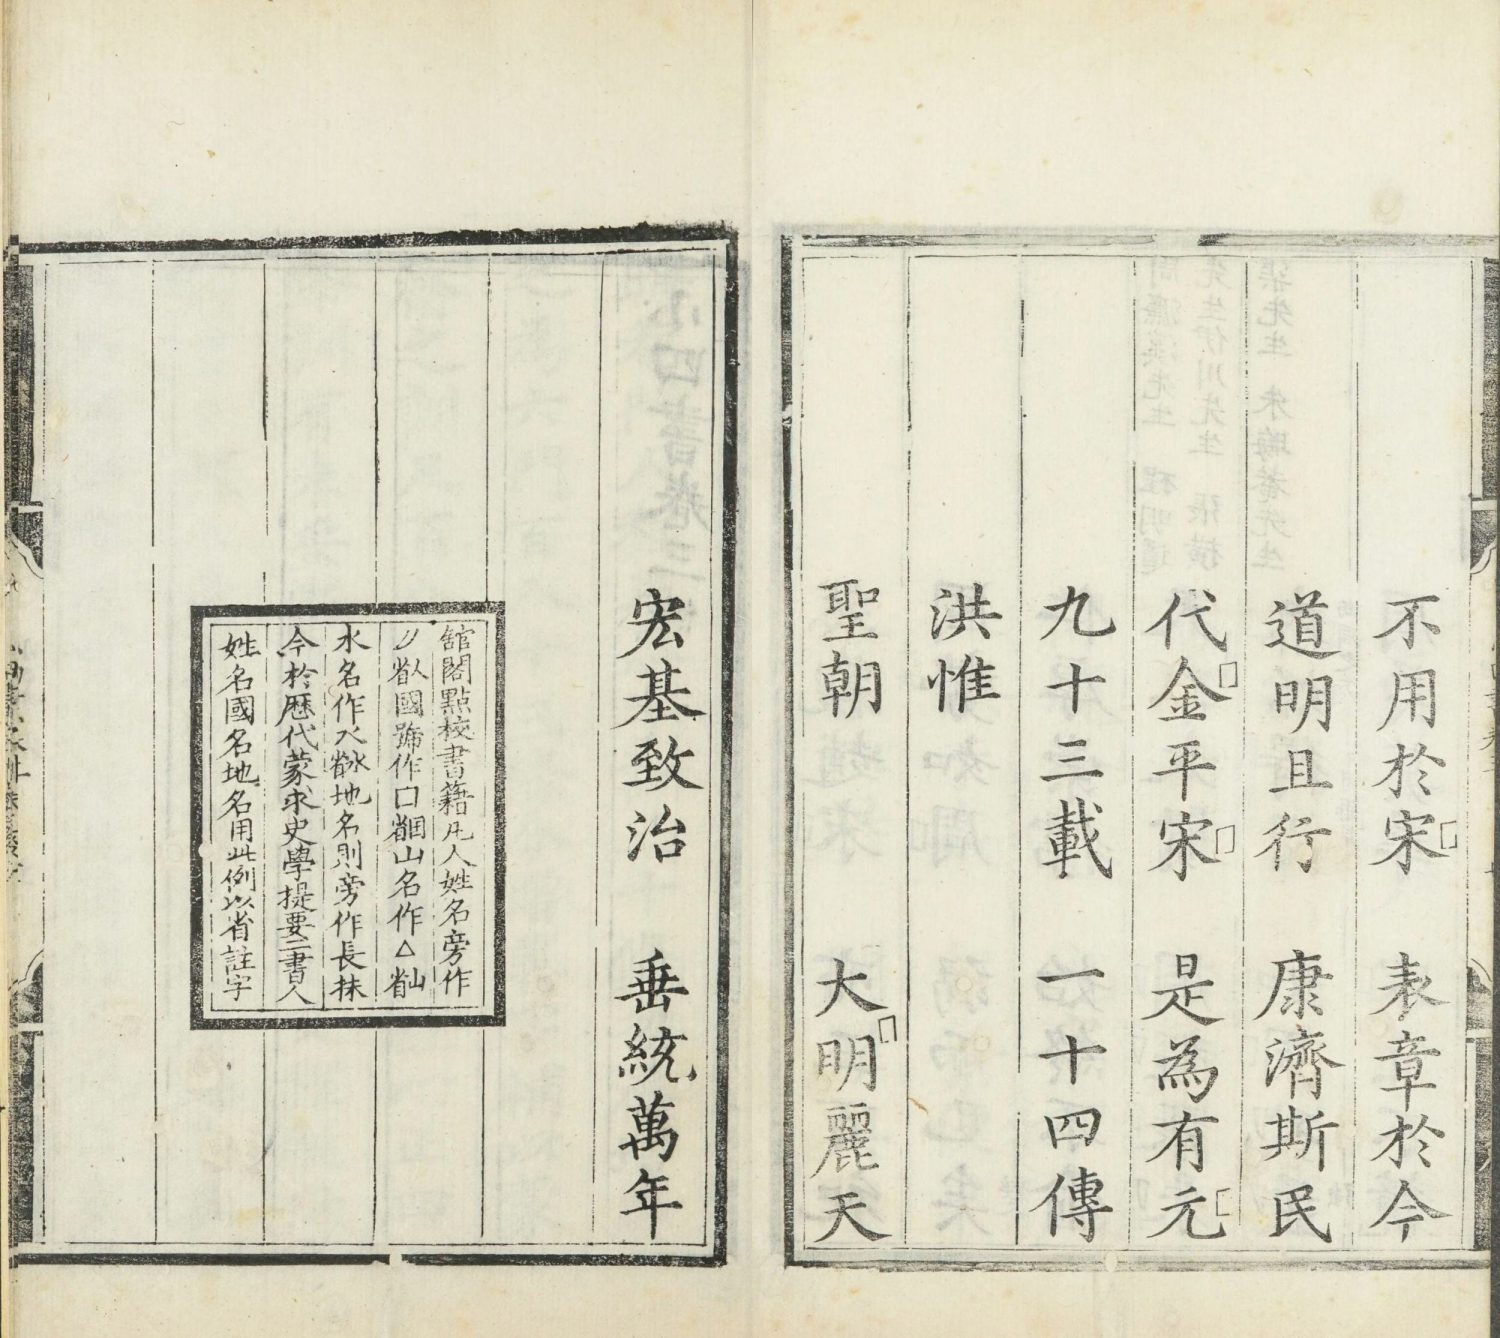 不用於宋 表章於今
道明且行 康濟斯民
代金平宋 是為有元
九十三載 一十四傳
洪惟
聖朝 大明麗天
宏基致治 垂統萬年
舘閣點校書籍凡人姓名旁作
國號作口
山名作△
水名作 地名則旁作長抹
今於歷代蒙求史學提要二書人
姓名國名地名用此例以省註字